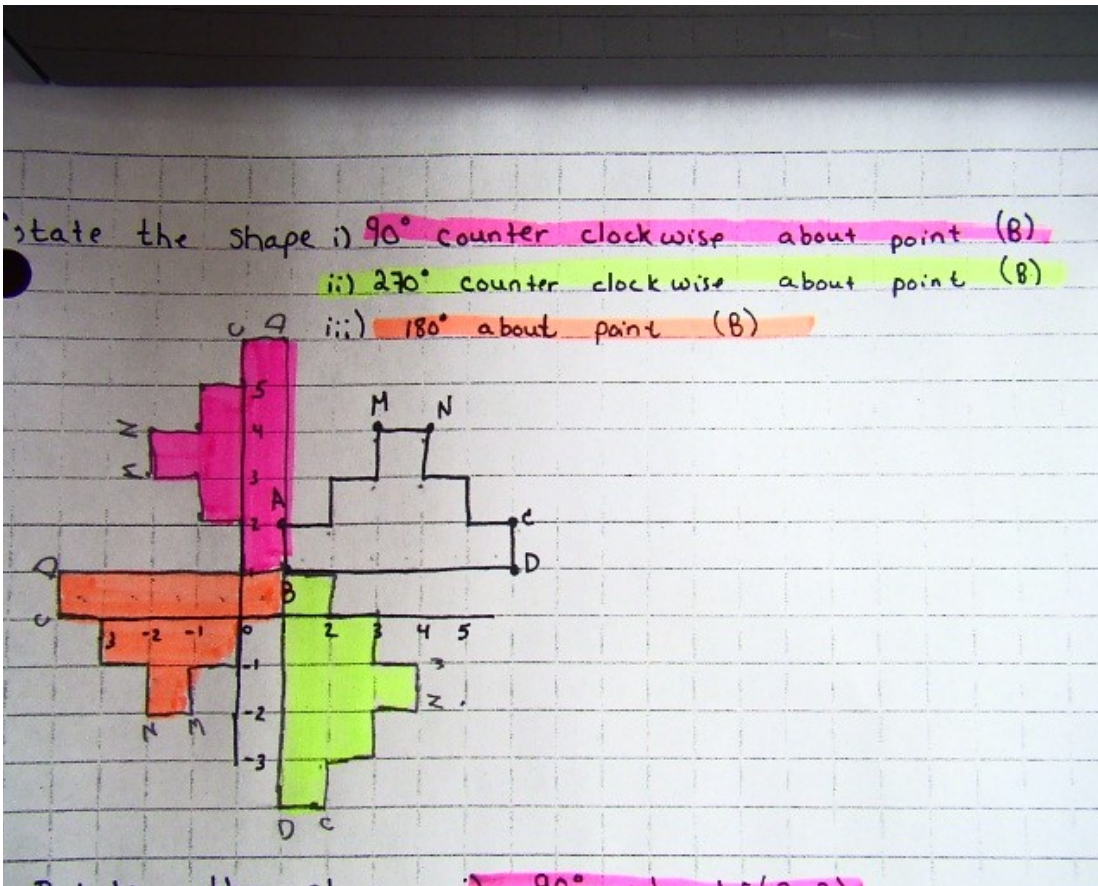 state the shape i) 90° counter clockwise about point (B)
ii) 270° counter clockwise about point (B)
iii) 180° about point (B)
C D
5
M N
N 4
M 3
A
2 C
1 D
D B
C
3 -2 -1 0 2 3 4 5
-1 M
-2 N
N M
-3
D C
i) 90°